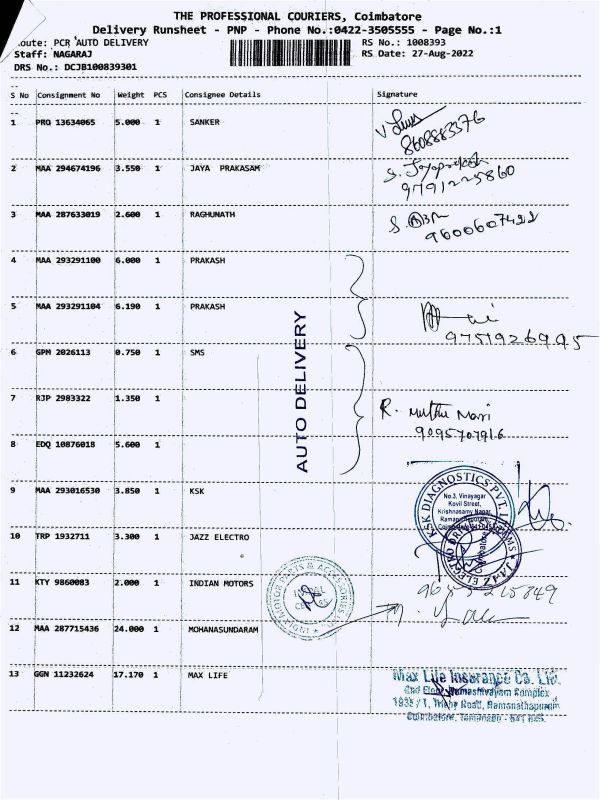 THE PROFESSIONAL COURIERS, Coimbatore
Delivery Runsheet - PNP - Phone No.:0422-3505555 - Page No.:1
oute: PCR AUTO DELIVERY RS No.: 1008393
Staff: NAGARAJ RS Date: 27-Aug-2022
DRS No.: DCJB100839301
S No Consignment No Weight PCS Consignee Details Signature
1 PRO 13634065 5.000 1 SANKER
8608883376
2 MAA 294674196 3.550 1 JAYA PRAKASAM S. Jayaprakash
9791225860
3 MAA 287633019 2.600 1 RAGHUNATH
9600607422
4 MAA 293291100 6.000 1 PRAKASH
5 MAA 293291104 6.190 1 PRAKASH
9751926995
6 GPM 2026113 0.750 1 SMS
AUTO DELIVERY
7 RJP 2983322 1.350 1 R. Muthu Mari
9095707916
8 EDQ 10876018 5.600 1
9 MAA 293016530 3.850 1 KSK
KSK DIAGNOSTICS PVT.
No.3, Vinayagar
Kovil Street,
Krishnasamy Nagar,
Ramanathapuram,
10 TRP 1932711 3.300 1 JAZZ ELECTRO
JAZZ ELECTRO
Coimbatore
11 KTY 9860083 2.000 1 INDIAN MOTORS
12 MAA 287715436 24.000 1 MOHANASUNDARAM
13 GGN 11232624 17.170 1 MAX LIFE
Max Life Insurance Co. Ltd.
2nd Floor, Complex
1935 / 1, Trichy Road, Ramanathapuram
Coimbatore, Tamilnadu - 641 045.